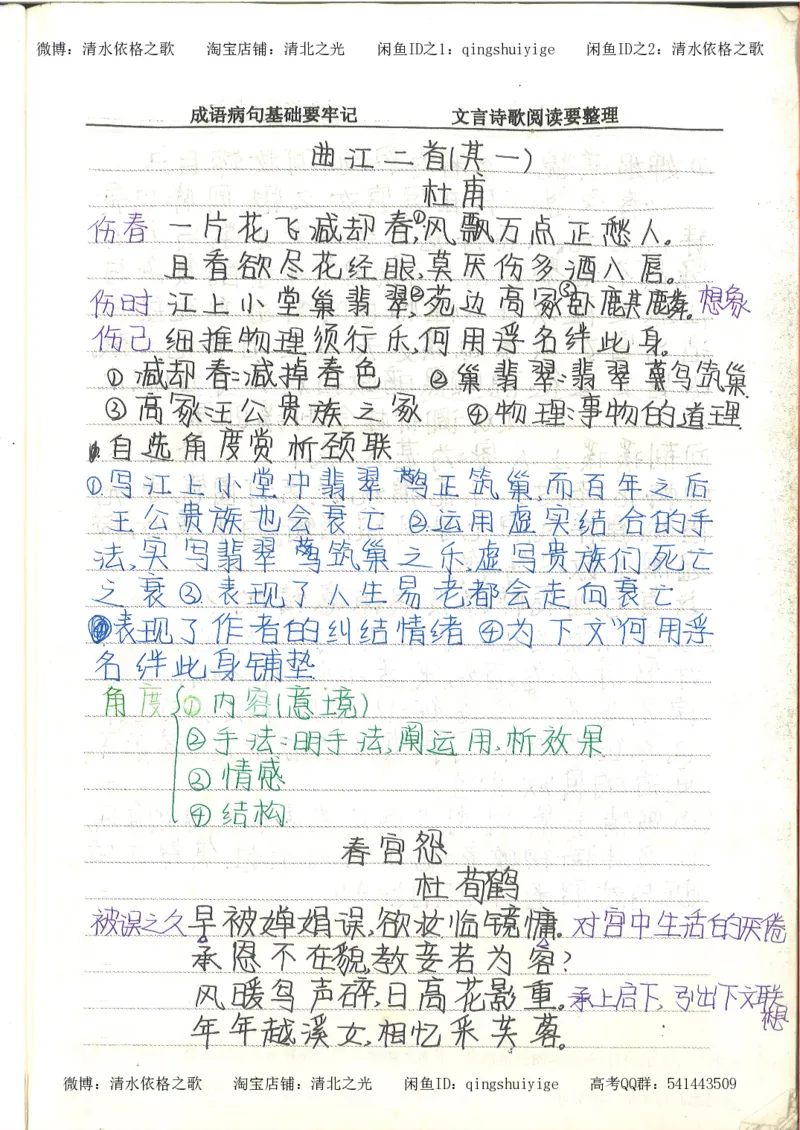 微博：清水依格之歌 淘宝店铺：清北之光 闲鱼ID之1：qingshuiyige 闲鱼ID之2：清水依格之歌
成语病句基础要牢记 文言诗歌阅读要整理
曲江二首(其一)
杜甫
伤春 一片花飞减却春①,风飘万点正愁人。
且看欲尽花经眼,莫厌伤多酒入唇。
伤时 江上小堂巢翡翠②,苑边高冢③卧麒麟。想象
伤己 细推物理须行乐,何用浮名绊此身。
①减却春:减掉春色 ②巢翡翠:翡翠鸟筑巢
③高冢:王公贵族之冢 ④物理:事物的道理
自选角度赏析颈联
①.写江上小堂中翡翠鸟正筑巢,而百年之后
王公贵族也会衰亡 ②.运用虚实结合的手
法,实写翡翠鸟筑巢之乐,虚写贵族们死亡
之衰 ③.表现了人生易老,都会走向衰亡
表现了作者的纠结情绪 ④为下文"何用浮
名绊此身铺垫
角度 ①内容(意境)
②手法:明手法,阐运用,析效果
③情感
④结构
春宫怨
杜荀鹤
被误之久 早被婵娟误,欲妆临镜慵。对宫中生活的厌倦
承恩不在貌,教妾若为容?
风暖鸟声碎,日高花影重。承上启下,引出下文联
想
年年越溪女,相忆采芙蓉。
微博：清水依格之歌 淘宝店铺：清北之光 闲鱼ID：qingshuiyige 高考QQ群：541443509